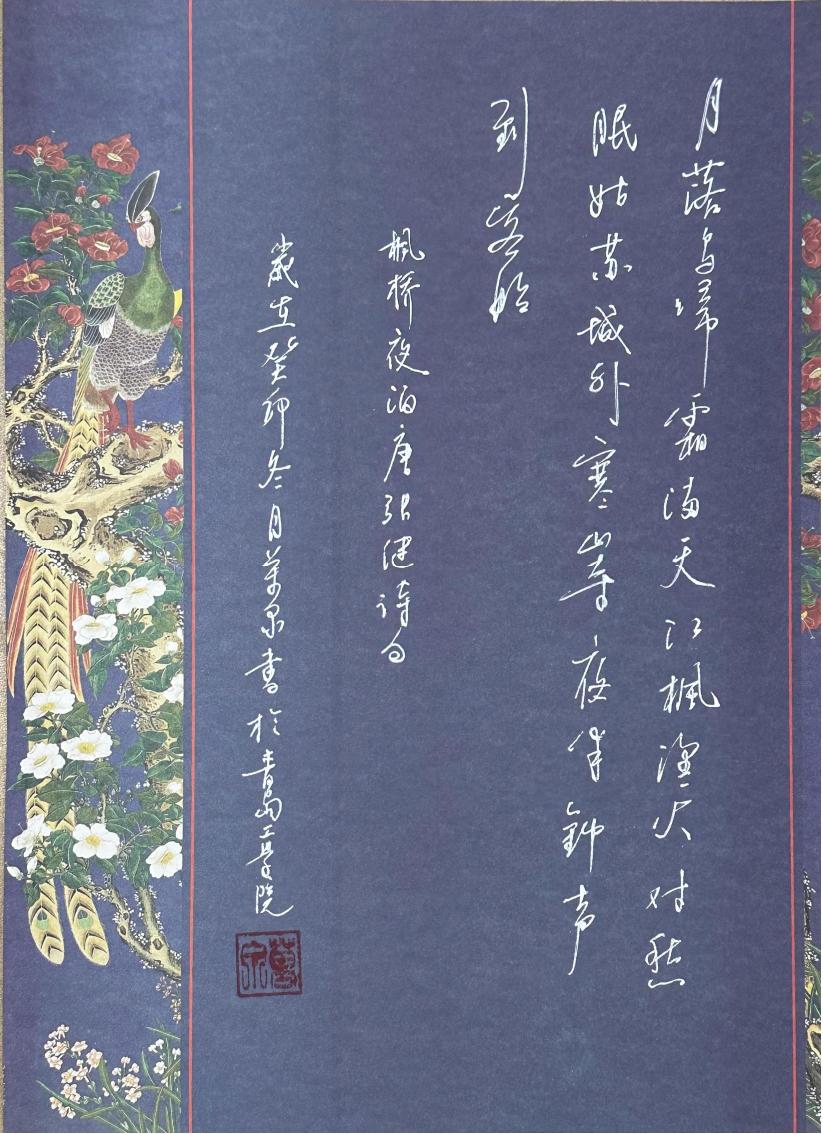 月落乌啼霜满天江楓渔火对愁
眠姑苏城外寒山寺夜半钟声
到客船
楓桥夜泊唐张继诗句
歲在癸卯冬月萬泉書於青岛工学院
萬泉